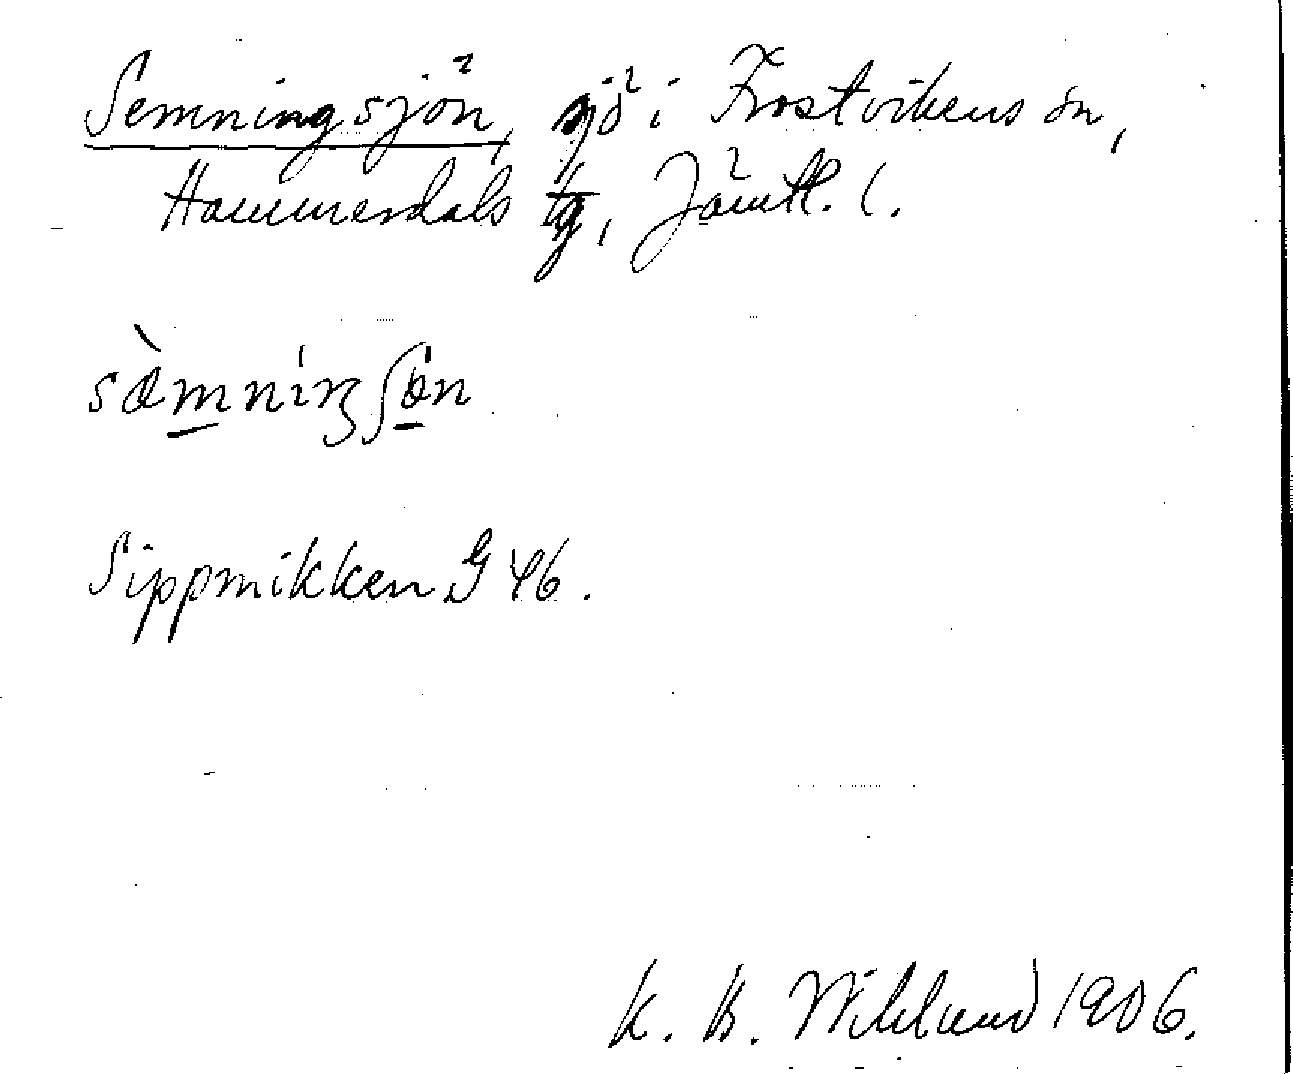 Semningsjön, sjö i Frostvikens sn,
Hammerdals tg, Jämtl. l.
sæ̀mníŋʃön
Sippmikken G 46.
K. B. Wiklund 1906.